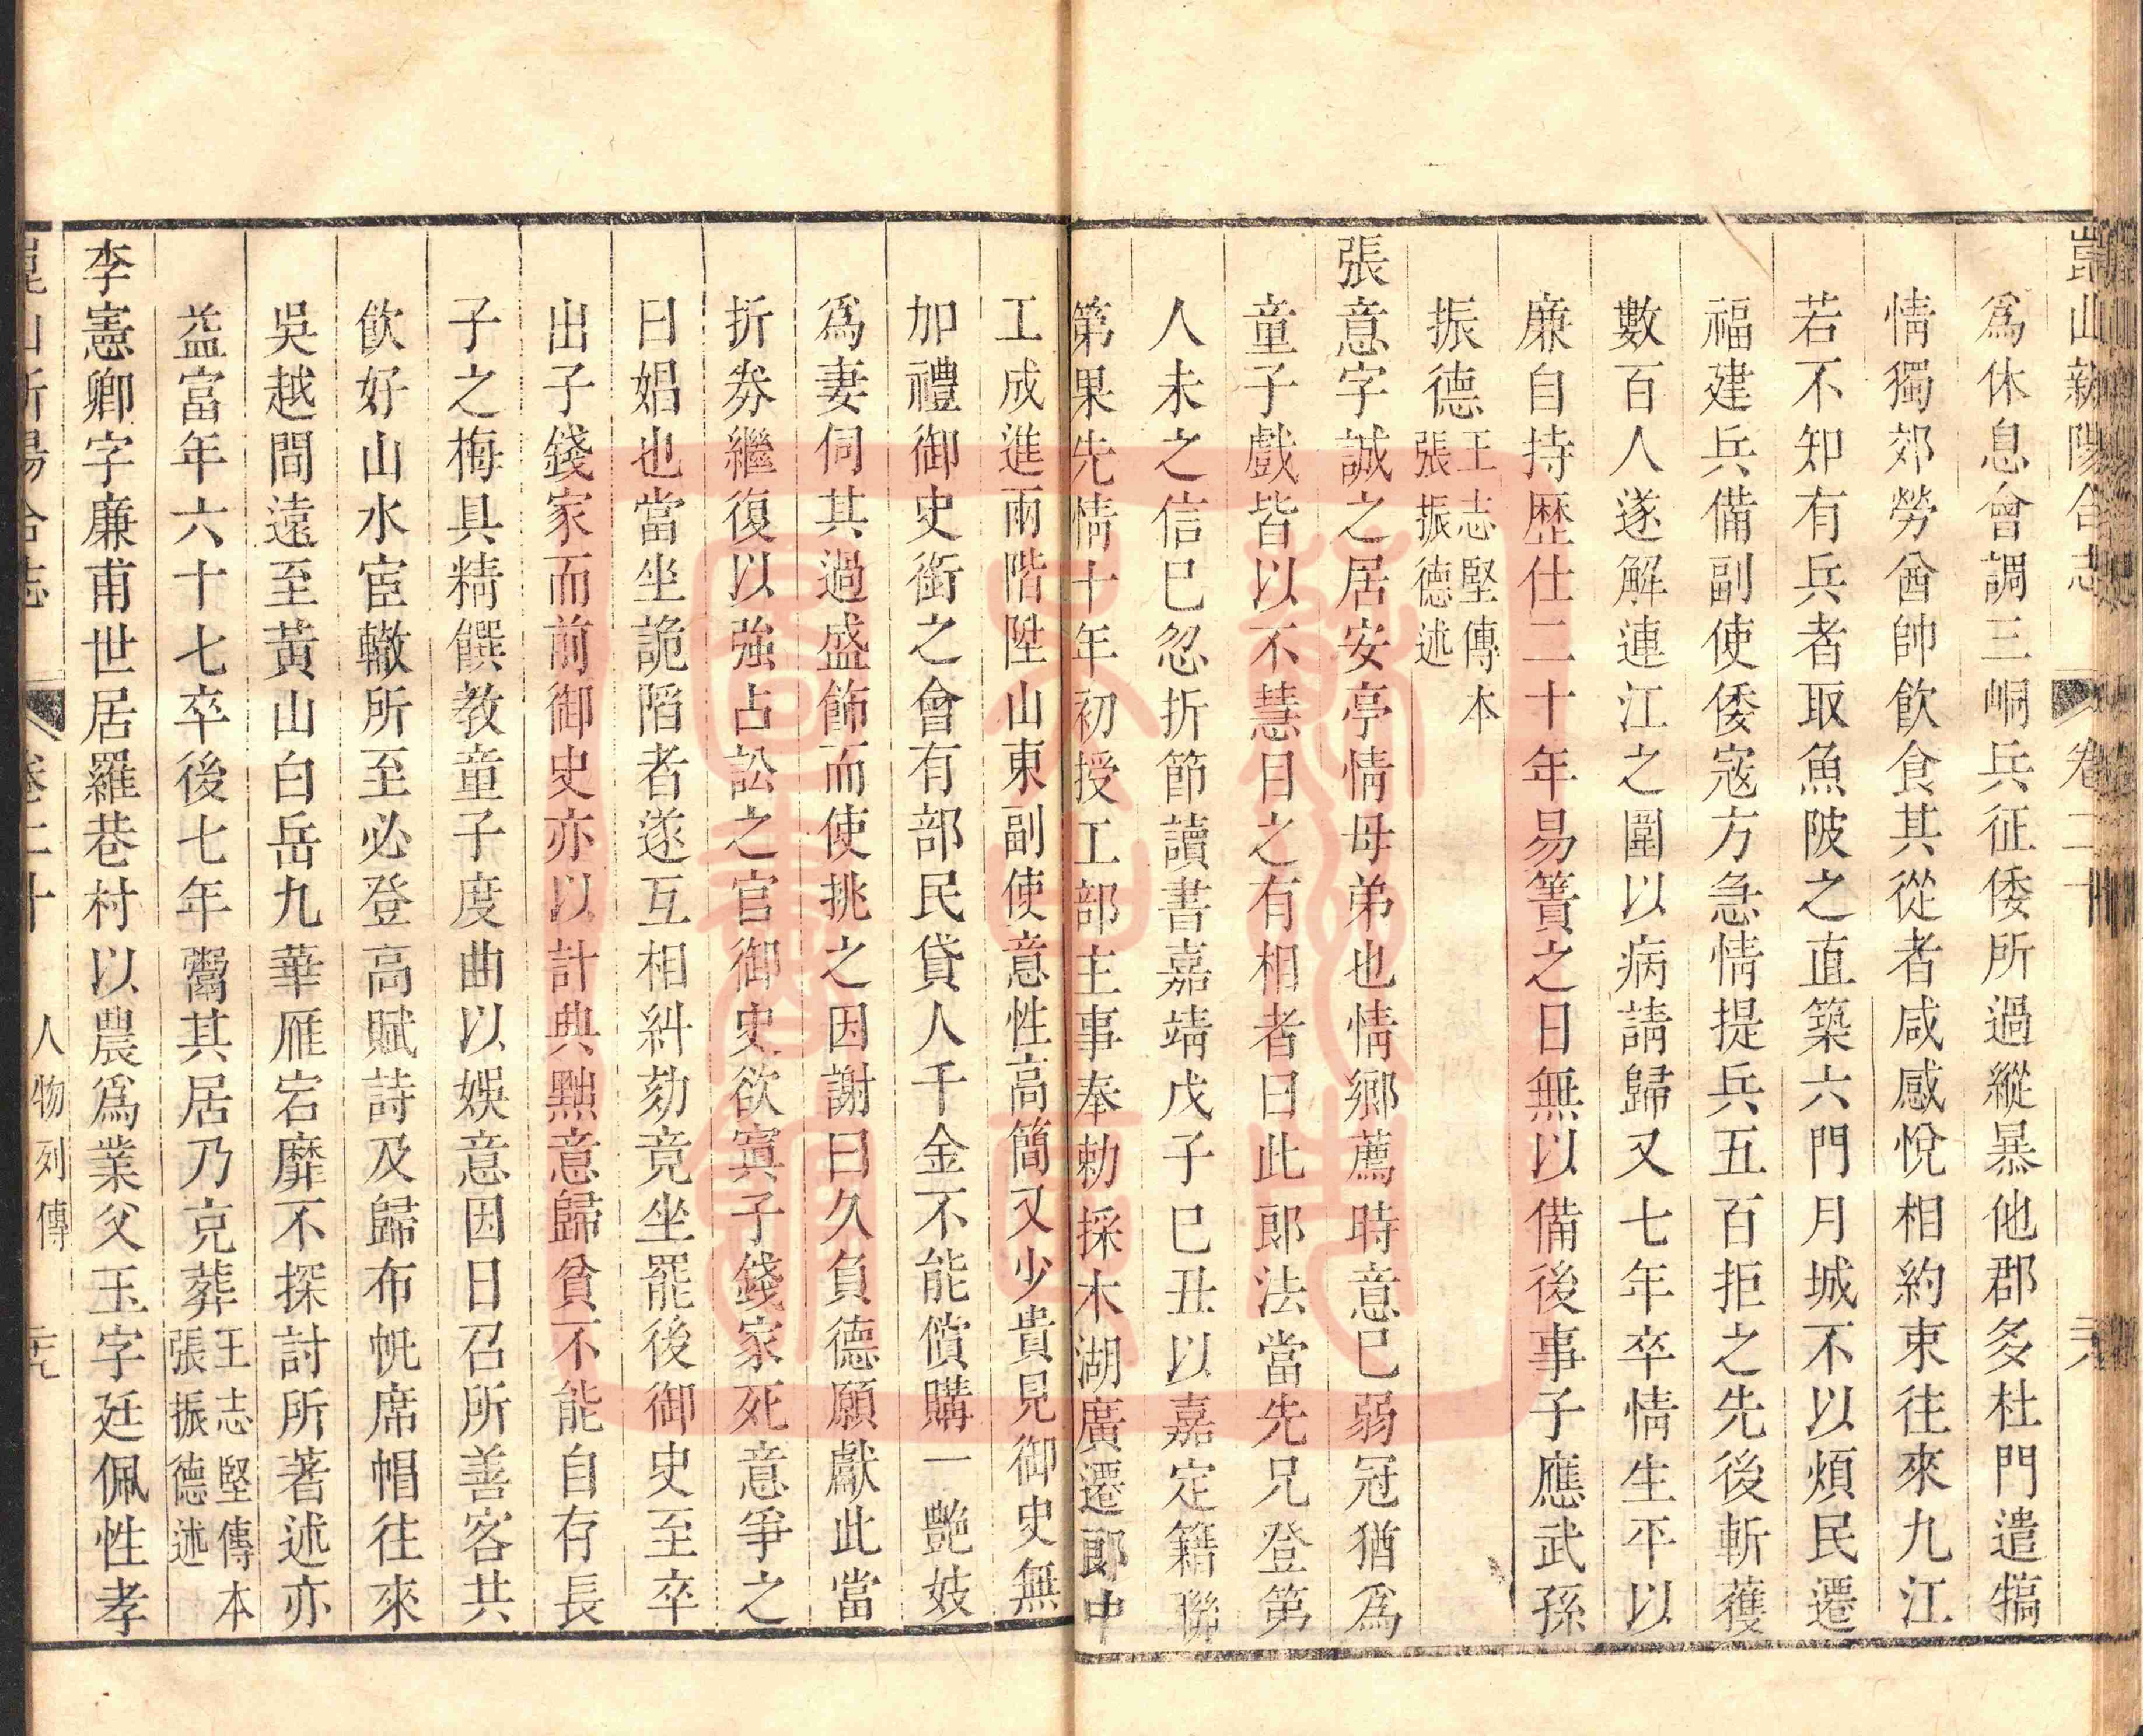 崑山新陽合志 卷二十 二八
爲休息會調三峒兵征倭所過縱暴他郡多杜門遣犒
情獨郊勞酋帥飲食其從者咸感悅相約束往來九江
若不知有兵者取魚陂之直築六門月城不以煩民遷
福建兵備副使倭寇方急情提兵五百拒之先後斬獲
數百人遂解連江之圍以病請歸又七年卒情生平以
廉自持歷仕二十年易簀之日無以備後事子應武孫
振德王志堅傳本張振德述
張意字誠之居安亭情母弟也情鄉薦時意巳弱冠猶爲
童子戲皆以不慧目之有相者曰此郎法當先兄登第
人未之信巳忽折節讀書嘉靖戊子巳丑以嘉定籍聯
第果先情十年初授工部主事奉勅採木湖廣遷郎中
工成進兩階陞山東副使意性高簡又少貴見御史無
加禮御史銜之會有部民貸人千金不能償購一艷妓
爲妻伺其過盛飾而使挑之因謝曰久負德願獻此當
折券繼復以強占訟之官御史欲寘子錢家死意爭之
曰娼也當坐詭陷者遂互相糾劾竟坐罷後御史至卒
出子錢家而前御史亦以計典黜意歸貧不能自存長
子之梅具精饌教童子度曲以娛意因日召所善客共
飲好山水宦轍所至必登高賦詩及歸布帆席帽往來
吳越間遠至黃山白岳九華雁宕靡不探討所著述亦
益富年六十七卒後七年鬻其居乃克葬王志堅傳本張振德述
李憲卿字廉甫世居羅巷村以農爲業父玉字廷佩性孝
崑山新陽合志 卷二十 人物列傳 二九